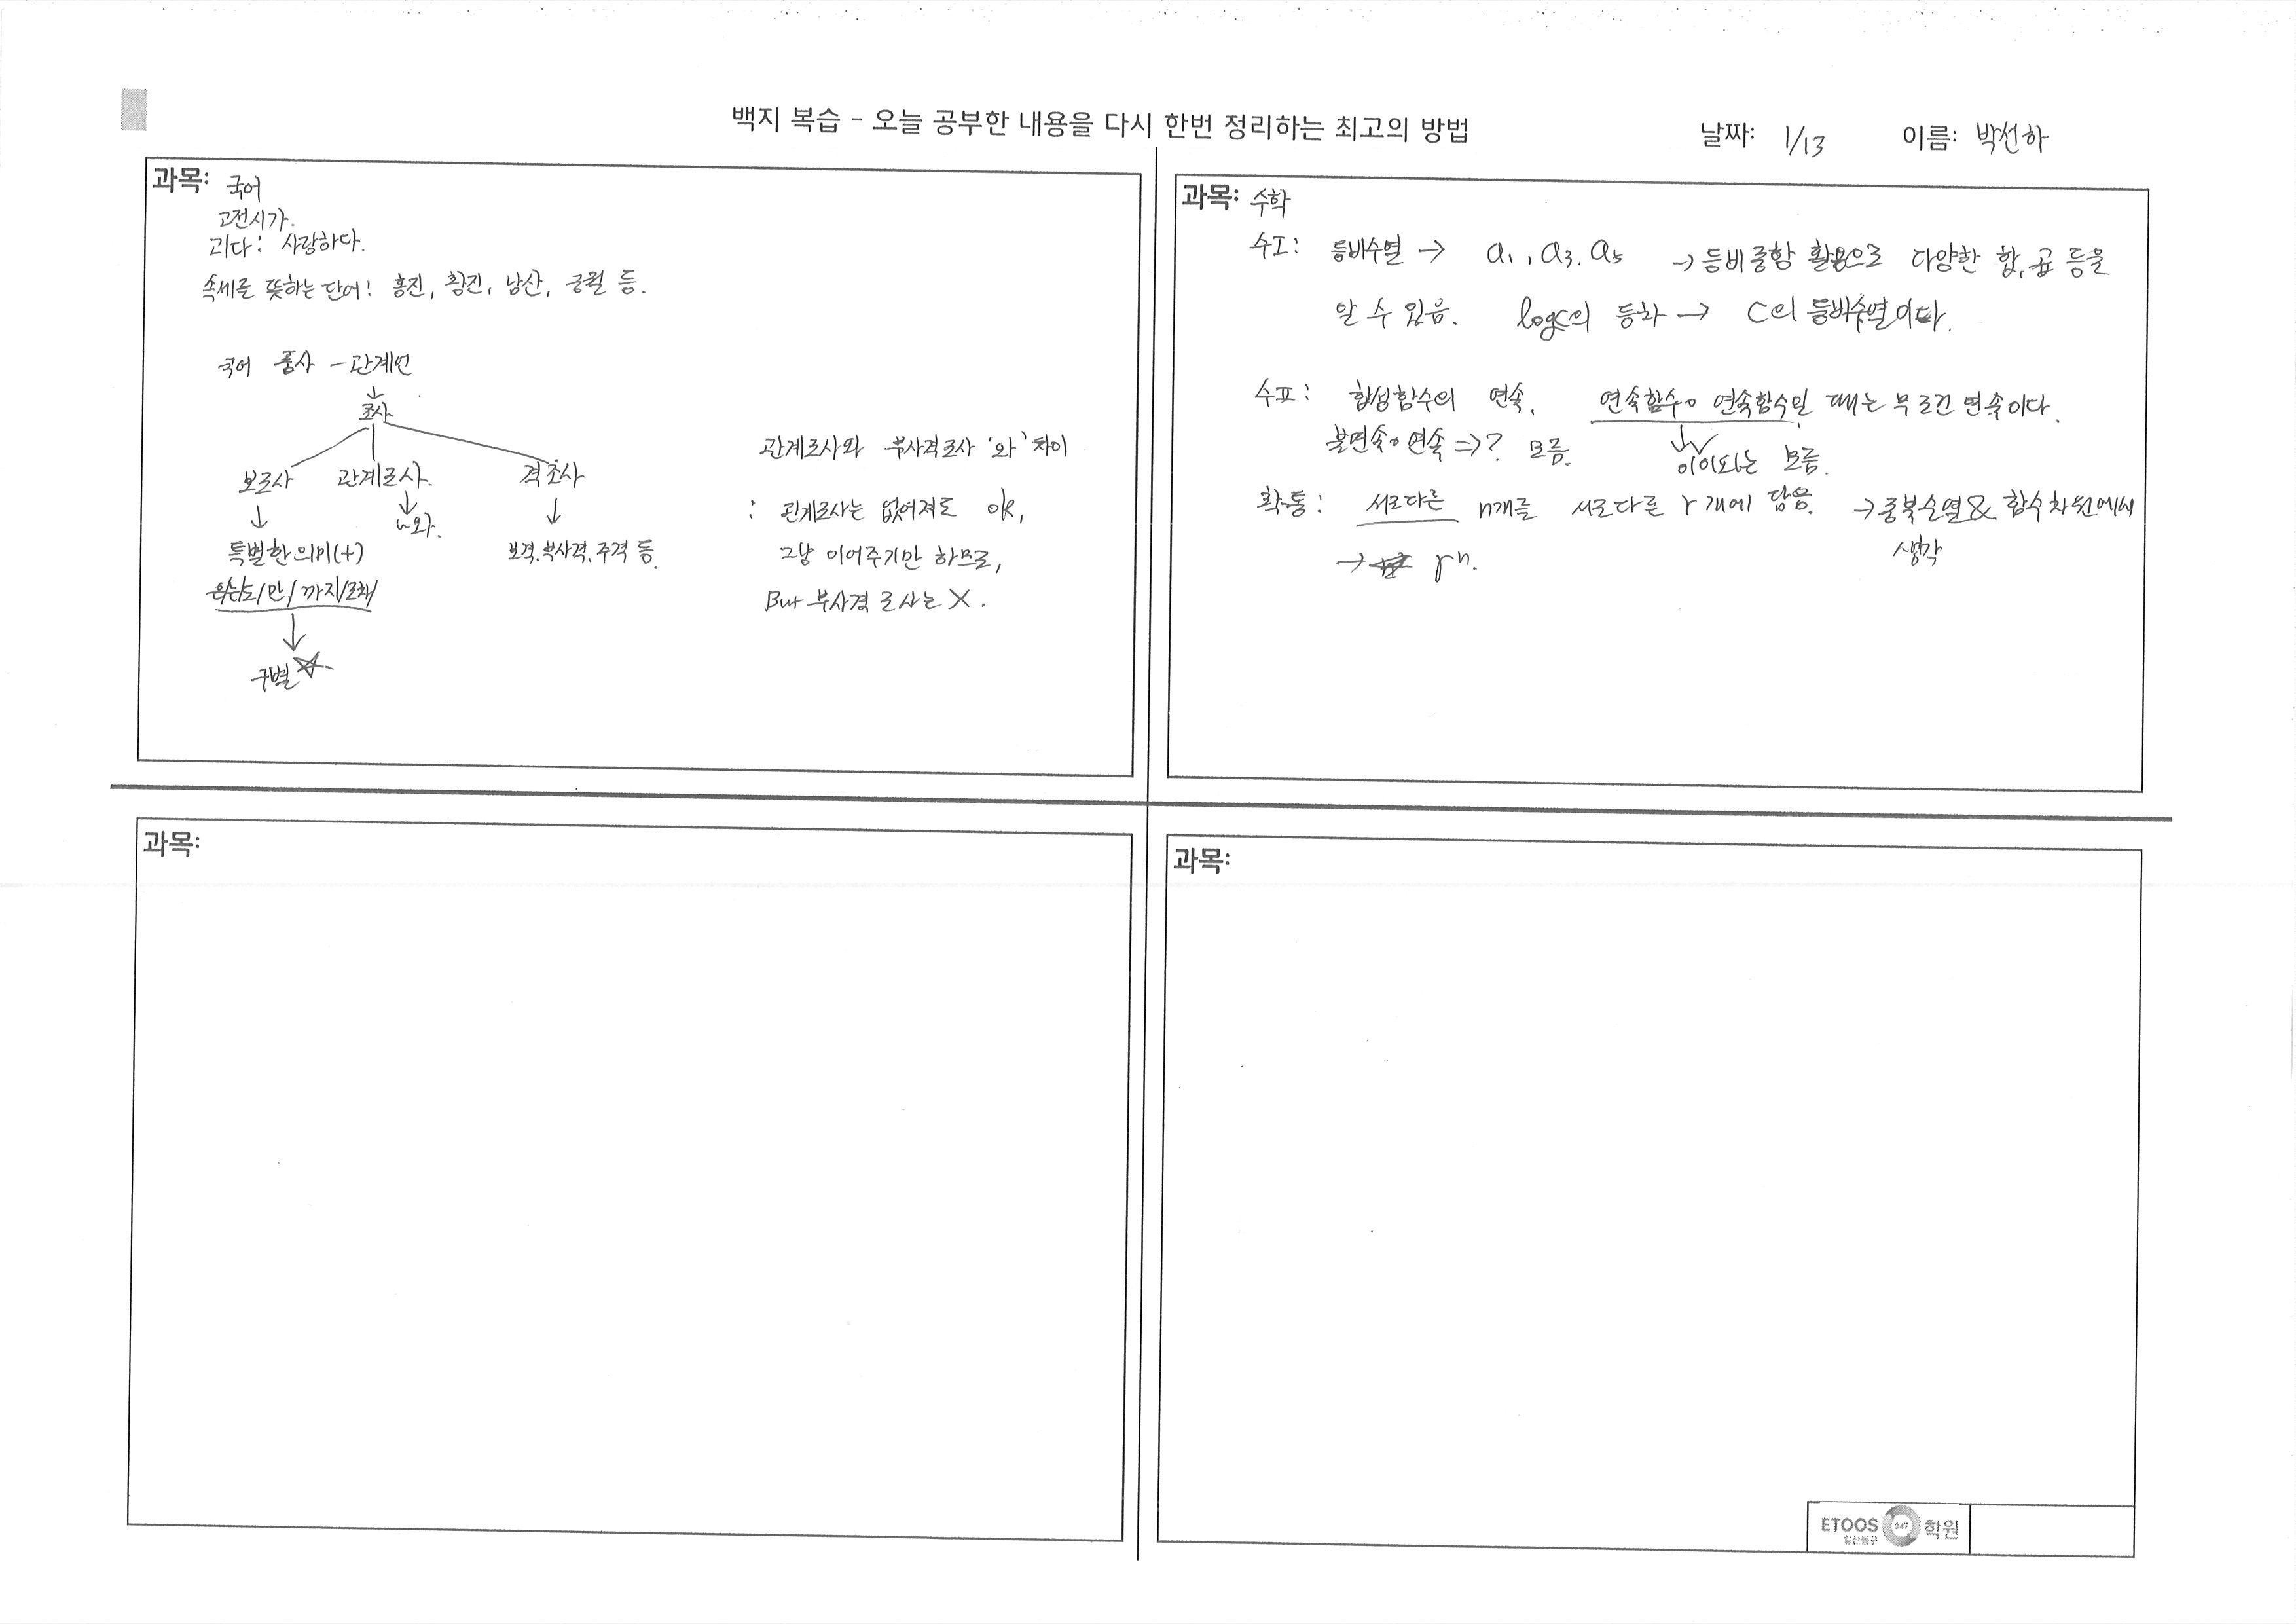 백지 복습 - 오늘 공부한 내용을 다시 한번 정리하는 최고의 방법
날짜: 1/13
이름: 박선하
과목: 국어
고전시가.
괴다: 사랑하다.
속세를 뜻하는 단어! 홍진, 황진, 남산, 궁궐 등.
국어 품사 - 관계언
↓
조사
보조사 관계조사. 격조사
↓ ↓ ↓
와.
특별한 의미(+)
보격, 부사격, 주격 등.
도/만/까지/조차
↓
구별 ☆
관계조사와 부사격조사 '와' 차이
: 관계조사는 없어져도 ok,
그냥 이어주기만 하므로,
But 부사격 조사는 X.
과목: 수학
수I: 등비수열 → a₁, a₃, a₅ → 등비중항 활용으로 다양한 합, 곱 등을
알 수 있음. logc의 등차 → c의 등비수열이다.
수II: 합성함수의 연속. 연속함수∘연속함수일 때는 무조건 연속이다.
불연속∘연속 => ? 모름.
↓
이외는 모름.
확통: 서로다른 n개를 서로다른 r개에 담음. → 중복순열 & 함수 차원에서
생각
→ rⁿ.
과목:
과목:
ETOOS 247 학원